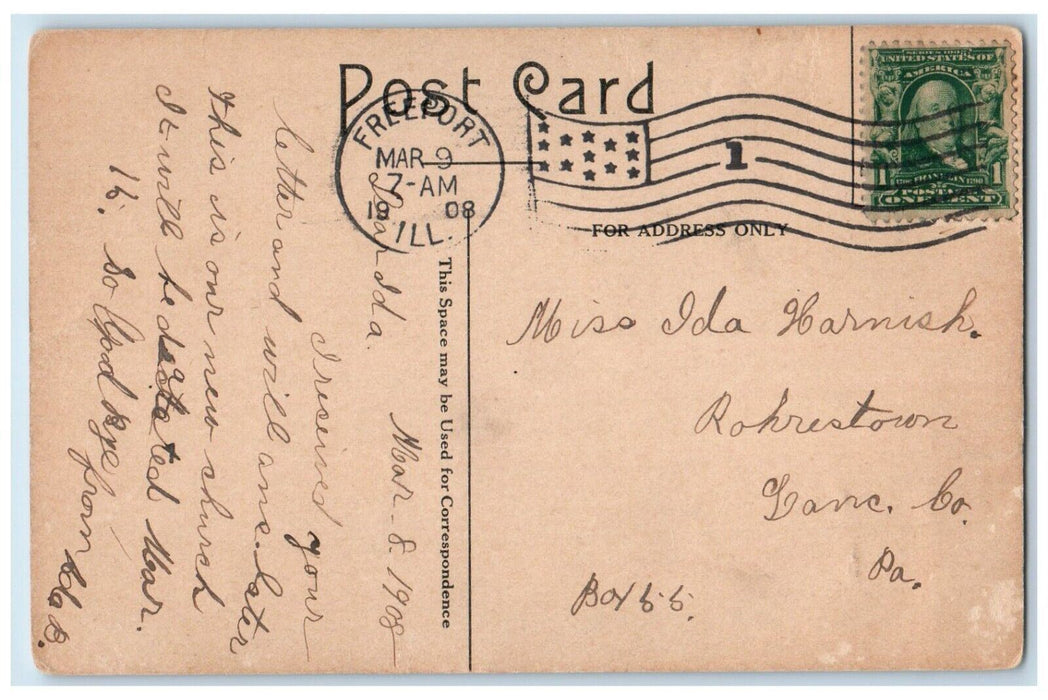 Post Card
FREEPORT
MAR 9
7-AM
19 08
ILL.
1
SERIES 1902
UNITED STATES OF
AMERICA
FRANKLIN
1 1
POSTAGE
ONE CENT
FOR ADDRESS ONLY
This Space may be Used for Correspondence
Miss Ida Harnish.
Rohrestown
Lanc. Co.
Pa.
Box 55.
Mar-8. 1908
Dear Ida.
I received your
letter and will ans. later
This is our new church
It will be dedicated Mar.
15. So Good Bye
from